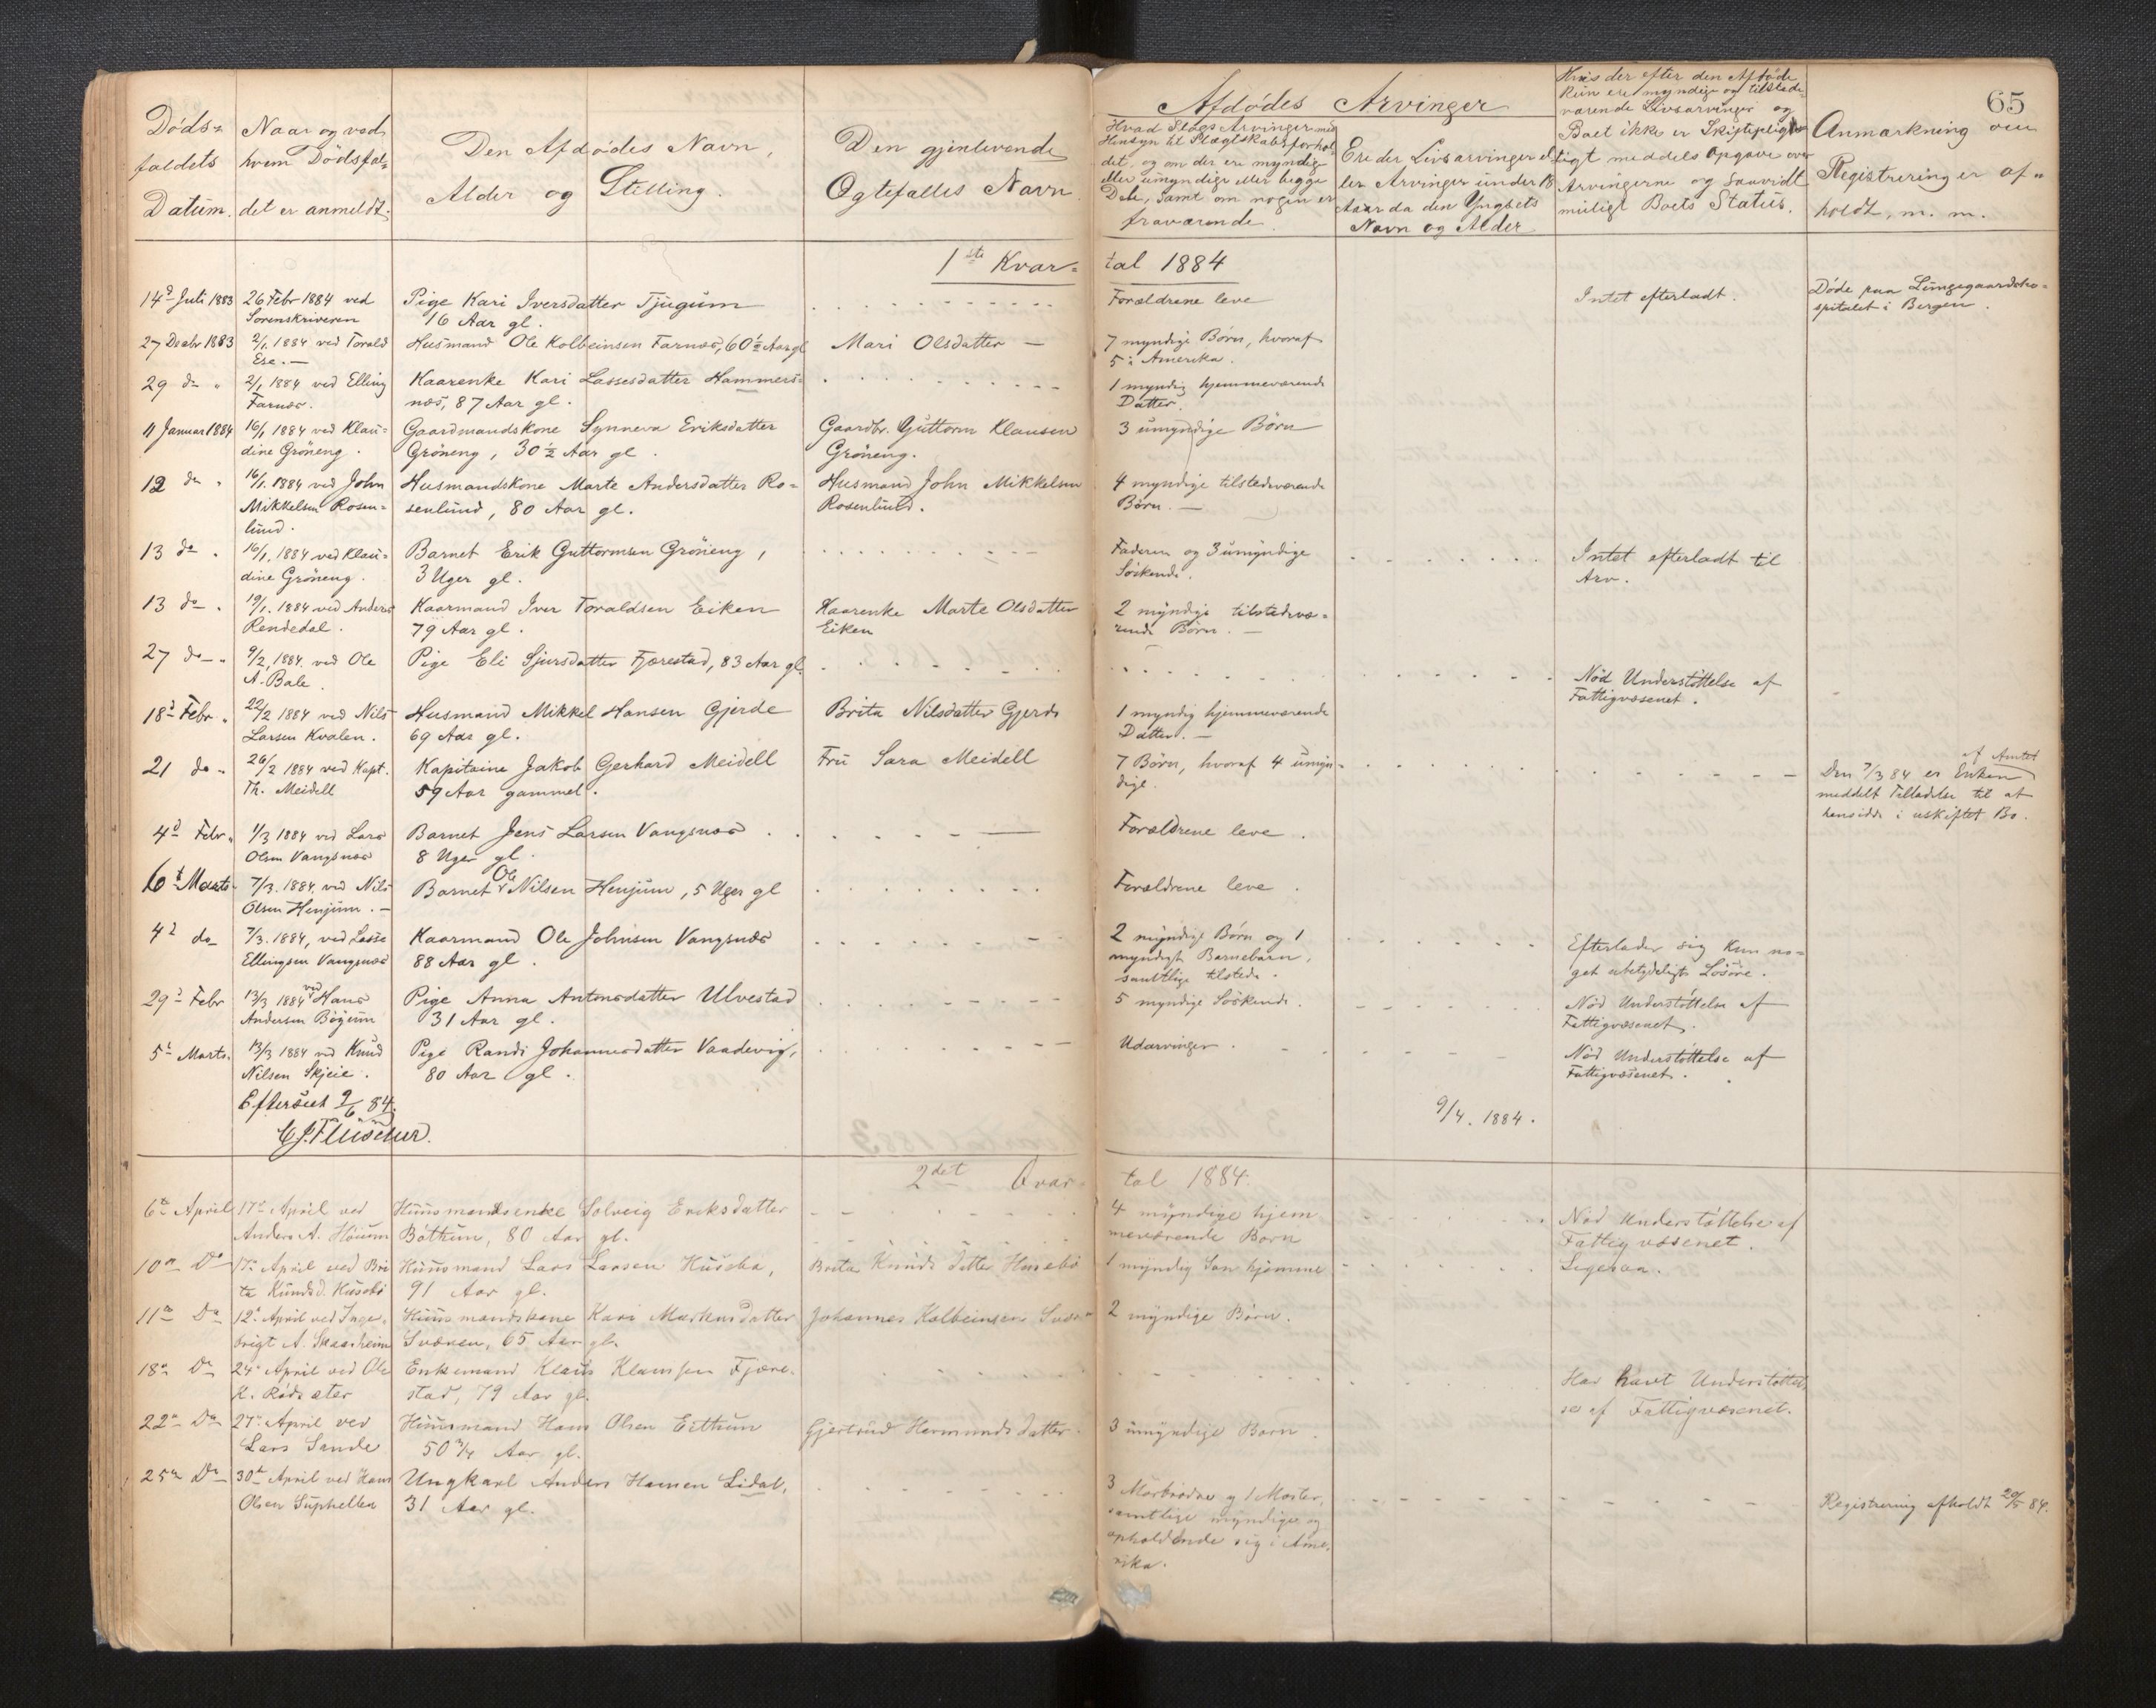 65
Døds-
faldets
Datum.
Naar og ved
hvem Dødsfal-
det er anmeldt.
Den Afdødes Navn,
Alder og Stilling.
Den gjenlevende
Ægtefælles Navn
Afdødes Arvinger
Hvad Slags Arvinger med
Hensyn til Slægtskabsforhol-
det, og om der ere myndige
eller umyndige eller begge
Dele, samt om nogen er
fraværende.
Ere der Livsarvinger el-
ler Arvinger under 18
Aar da den Yngstes
Navn og Alder
Hvis der efter den Afdøde
kun ere myndige og tilstede-
værende Livsarvinger og
Boet ikke er Skiftepligtigt
meddels Opgave over
Arvingerne og saavidt
muligt Boets Status.
Anmærkning om
Registrering er af-
holdt, m. m.
1ste Kvar- tal 1884
14d Juli 1883
26 Febr 1884 ved
Sorenskriveren
Pige Kari Iversdatter Tjugum
16 Aar gl.
Forældrene leve
Intet efterladt.
Døde paa Lungegaardsho-
spitalet i Bergen.
27 Decbr 1883
2/1 1884 ved Torald
Ese. —
Husmand Ole Kolbeinsen Farnæs, 60½ Aar gl
Mari Olsdatter —
7 myndige Børn, hvoraf
5 i Amerika.
29 do "
2/1 1884 ved Elling
Farnæs.
Kaarenke Kari Lassesdatter Hammers-
næs, 87 Aar gl.
1 myndig hjemmeværende
Datter.
11 Januar 1884
16/1 1884 ved Klau-
dine Grøneng.
Gaardmandskone Synneva Eriksdatter
Grøneng, 30½ Aar gl.
Gaardbr. Guttorm Klausen
Grøneng.
3 umyndige Børn
12 do "
16/1. 1884 ved John
Mikkelsen Rosen-
lund.
Husmandskone Marte Andersdatter Ro-
senlund, 80 Aar gl.
Husmand John Mikkelsen
Rosenlund.
4 myndige tilstedeværende
Børn. —
13 do "
16/1. 1884 ved Klau-
dine Grøneng.
Barnet Erik Guttormsen Grøneng,
3 Uger gl.
Faderen og 3 umyndige
Søskende.
Intet efterladt til
Arv.
13 do "
19/1. 1884 ved Anders
Rendedal.
Kaarmand Iver Toraldsen Eiken
79 Aar gl.
Kaarenke Marte Olsdatter
Eiken
2 myndige tilstedevæ-
rende Børn. —
27 do "
9/2, 1884. ved Ole
A. Bale.
Pige Eli Sjursdatter Fjærestad, 83 Aar gl.
Nød Understøttelse af
Fattigvæsenet.
18d Febr "
22/2 1884 ved Nils
Larsen Kvalen.
Husmand Mikkel Hansen Gjerde
69 Aar gl.
Brita Nilsdatter Gjerde
1 myndig hjemmeværende
Datter. —
21 do "
26/2 1884 ved Kapt.
Th. Meidell
Kapitaine Jakob Gerhard Meidell
59 Aar gammel.
Fru Sara Meidell
7 Børn, hvoraf 4 umyn-
dige.
af Amtet
Den 7/3 84 er Enken
meddelt Tilladelse til at
hensidde i uskiftet Bo.
4d Febr "
1/3 1884 ved Lars
Olsen Vangsnæs
Barnet Jens Larsen Vangsnæs
8 Uger gl.
Forældrene leve.
6t Marts
7/3. 1884. ved Nils
Olsen Henjum. —
Barnet Ole Nilsen Henjum, 5 Uger gl
Forældrene leve.
4d do
7/3. 1884, ved Lasse
Ellingsen Vangsnæs
Kaarmand Ole Johnsen Vangsnæs
88 Aar gl.
2 myndige Børn og 1
myndigt Barnebarn,
samtlige tilstede.
Efterlader sig kun no-
get ubetydeligt Løsøre.
29d Febr
13/3 1884 ved Hans
Andersen Bøyum
Pige Anna Antonsdatter Ulvestad
31 Aar gl.
5 myndige Søskende.
Nød Understøttelse af
Fattigvæsenet.
5t Marts.
13/3 1884 ved Knud
Nilsen Skjeie.
Pige Randi Johannesdatter Vaadevig,
80 Aar gl.
Udarvinger.
Nød Understøttelse af
Fattigvæsenet.
Efterseet 9/6 84.
9/4. 1884.
2det Qvar- tal 1884.
6te April
17de April ved
Anders A. Høium
Huusmandsenke Solveig Eriksdatter
Bøthun, 80 Aar gl.
4 myndige hjem
meværende Børn
Nød Understøttelse af
Fattigvæsenet.
10de Do
17de April ved Bri
ta Knudsd. Husebø
Huusmand Lars Larsen Husebø,
91 Aar gl.
Brita Knuds datter Husebø
1 myndig Søn hjemme
Ligesaa.
11te Do
12te April ved Inge-
brigt A. Skaasheim
Huusmandskone Kari Markusdatter
Sværen, 65 Aar gl.
Johannes Kolbeinsen Svær
2 myndige Børn.
18de Do
24de April ved Ole
K. Rødsæter
Enkemand Klaus Klausen Fjære-
stad, 79 Aar gl.
Har havt Understøttel-
se af Fattigvæsenet.
22de Do
27de April ved
Lars Sande
Huusmand Hans Olsen Eithun
50 3/4 Aar gl.
Gjertrud Hermunds datter.
3 umyndige Børn.
25de Do
30te April ved Hans
Olsen Suphellen
Ungkarl Anders Hansen Lidal,
31 Aar gl.
3 Morbrødre og 1 Moster,
samtlige myndige og
opholdende sig i Ame-
rika.
Registrering afholdt 20/5 84.